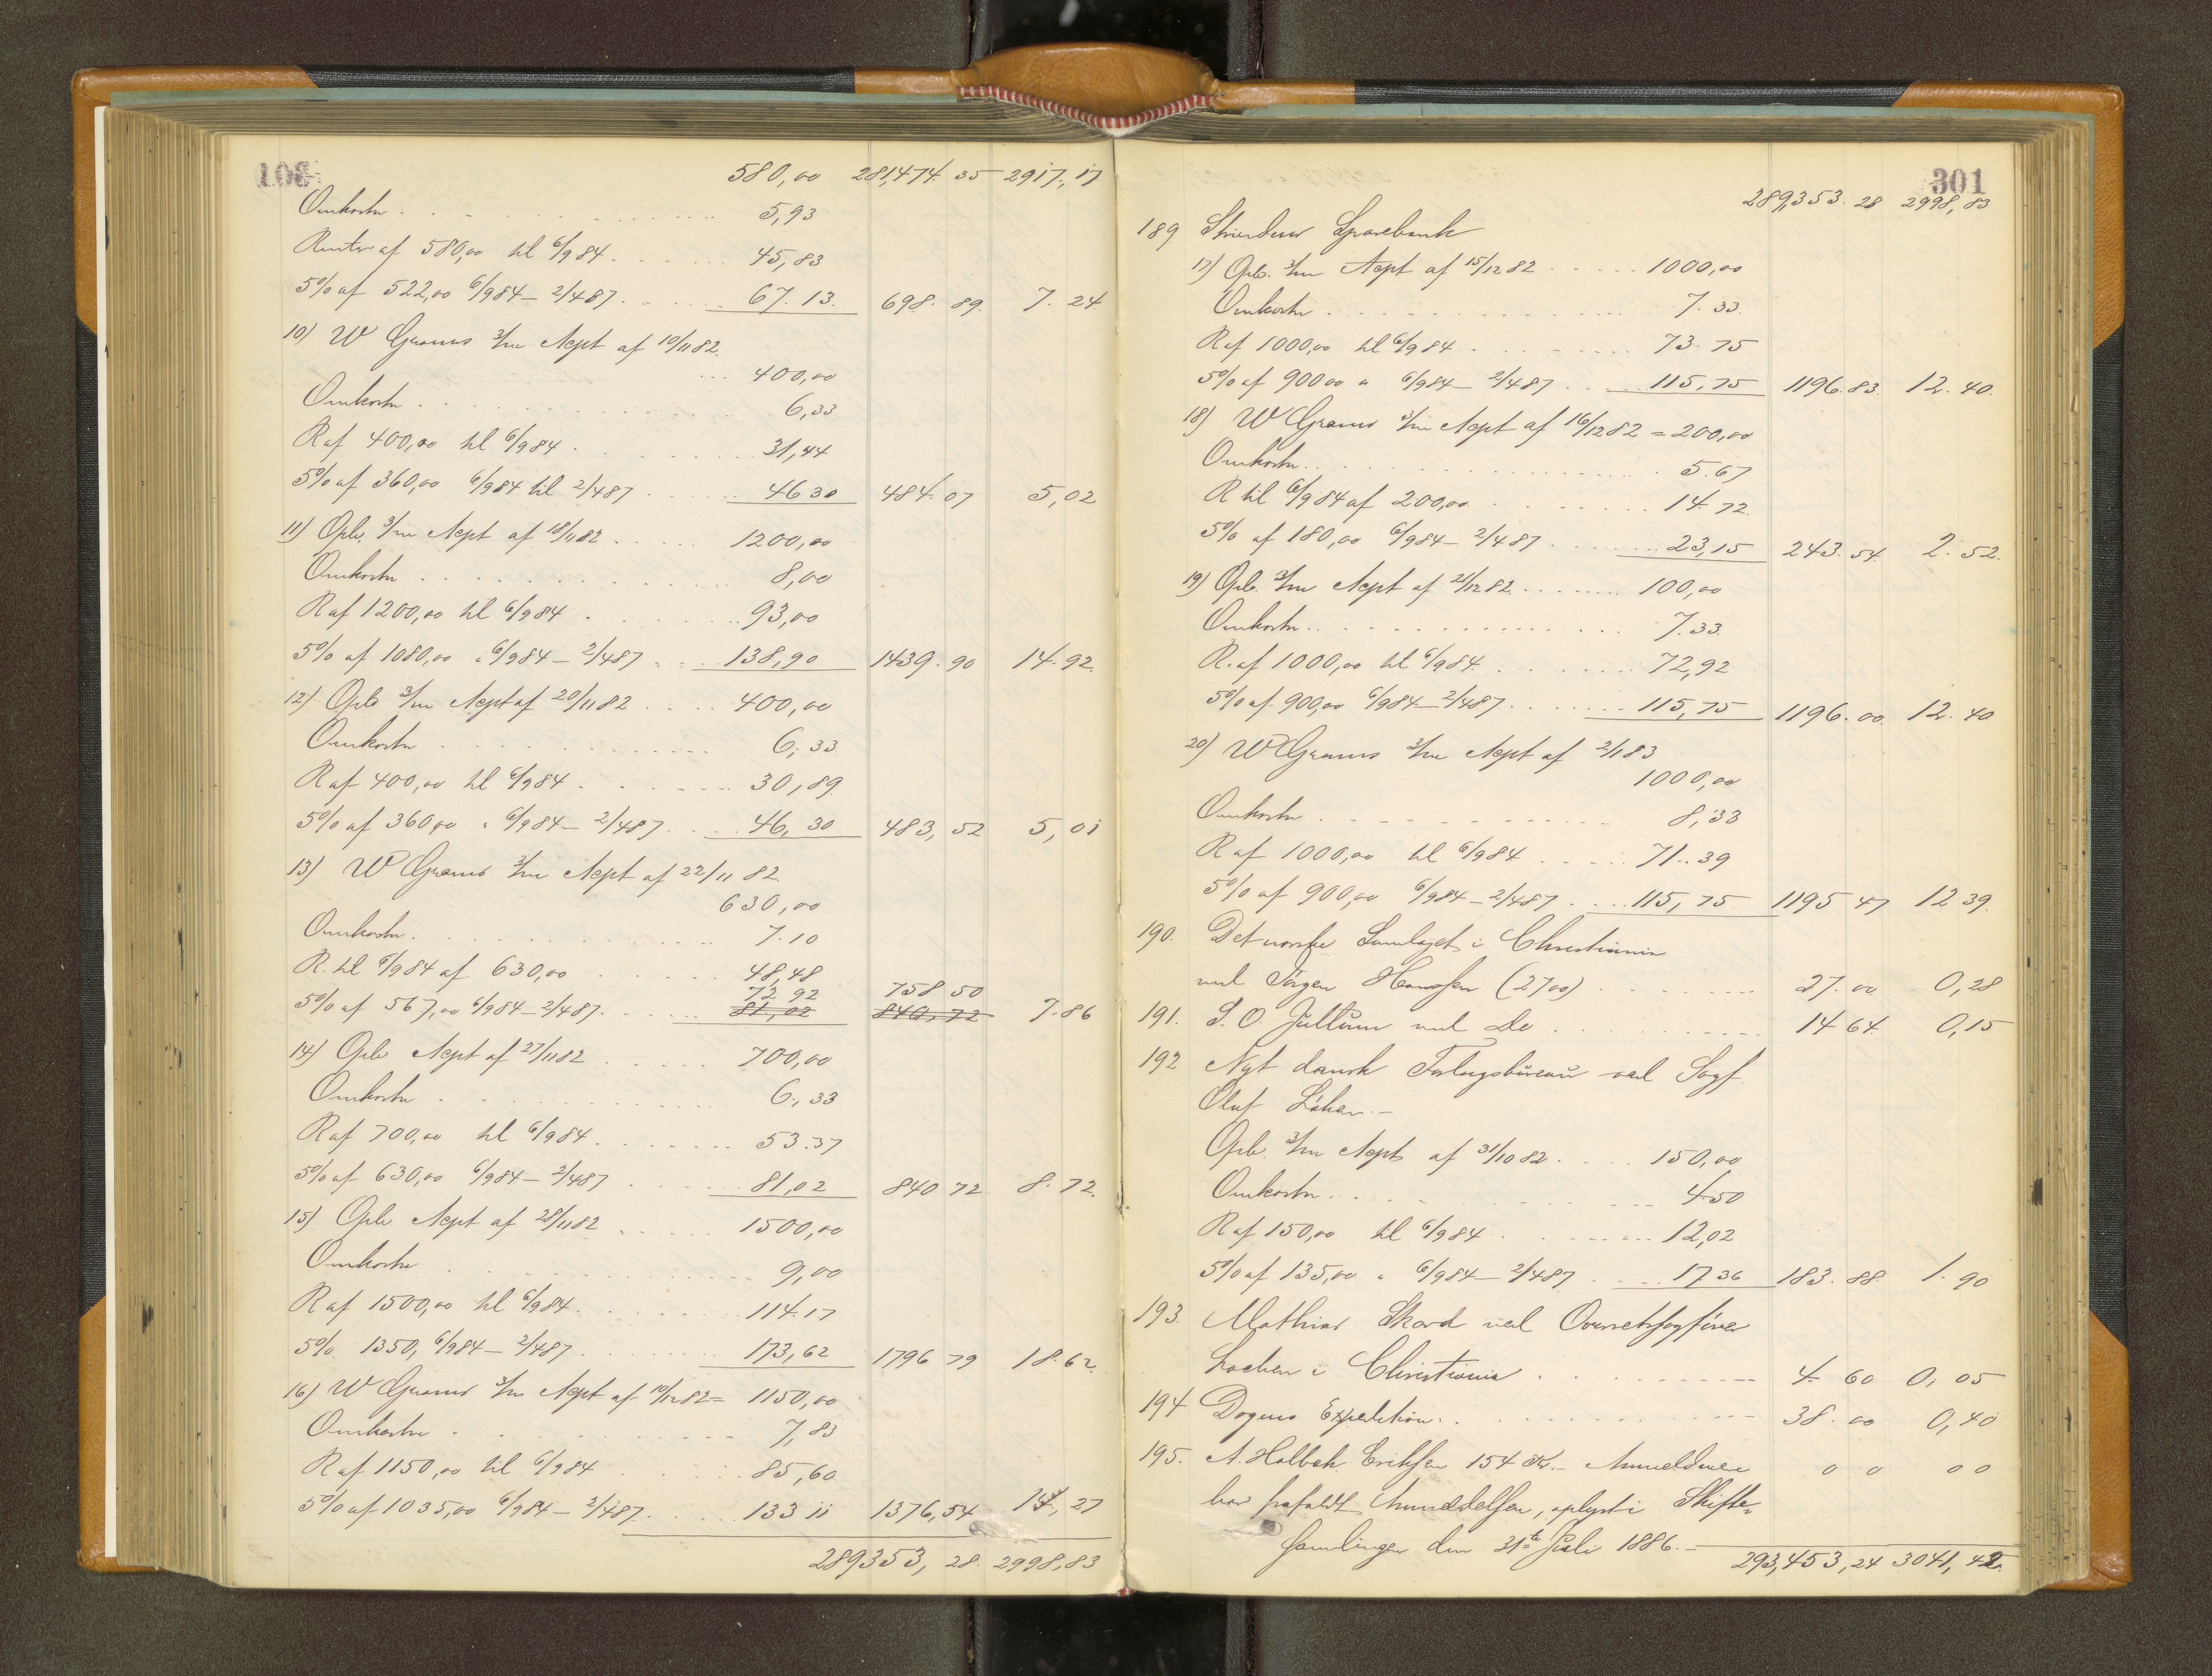 108
580,00 281,474. 35 2917, 17
Omkostn . . . 5,93
Renter af 580,00 til 6/9 84 . . . 45,83
5% af 522,00 6/9 84 – 2/4 87 . . . 67. 13. 698. 89. 7. 24.
10) W Grams 3/m Acpt af 10/11 82.
. . . 400,00
Omkostn . . . 6,33
R af 400,00 til 6/9 84 . . . 31,44
5% af 360,00 6/9 84 til 2/4 87 . . . 46 30 484. 07 5,02
11) Opb. 3/m Acpt af 18/11 82 . . . 1200,00
Omkostn . . . 8,00
R af 1200,00 til 6/9 84 . . . 93,00
5% af 1080,00 " 6/9 84 – 2/4 87 . . . 138,90 1439. 90 14. 92.
12) Opb 3/m Acpt af 20/11 82 . . . 400,00
Omkostn . . . 6,33
R af 400,00 til 6/9 84 . . . 30,89
5% af 360,00 " 6/9 84 – 2/4 87 . . . 46,30 483, 52 5,01
13) W Grams 3/m Acpt af 22/11 82
630,00
Omkostn . . . 7.10
R. til 6/9 84 af 630,00 . . . 48,48
72 92 758 50
5% af 567,00 6/9 84 – 2/4 87 . . . 81,02 840,72 7.86
14) Opb Acpt af 27/11 82 . . . 700,00
Omkostn . . . 6,33
R af 700,00 til 6/9 84 . . . 53.37
5% af 630,00 6/9 84 – 2/4 87 . . . 81,02 840 72 8.72.
15) Opb Acpt af 28/11 82 . . . 1500,00
Omkostn . . . 9,00
R af 1500,00 til 6/9 84 . . . 114.17
5% 1350, 6/9 84 – 2/4 87 . . . 173,62 1796 79 18.62
16) W Grams 3/m Acpt af 10/12 82 = 1150,00
Omkostn . . . 7,83
R af 1150,00 til 6/9 84 . . . 85,60
5% af 1035,00 6/9 84 – 2/4 87 . . . 133 11 1376,54 14,27
289353, 28. 2998,83
301
289,353. 28 2998,83
189 Skiendens Sparebank
17) Opb. 3/m Acpt af 15/12 82 . . . 1000,00
Omkostn . . . 7.33.
R af 1000,00 til 6/9 84 . . . 73.75
5% af 900 00 " 6/9 84 – 2/4 87 . . . 115,75 1196.83. 12.40.
18) W Grams 3/m Acpt af 16/12 82 = 200,00
Omkostn . . . 5.67
R til 6/9 84 af 200,00 . . . 14.72
5% af 180,00 6/9 84 – 2/4 87 . . . 23,15 243.54. 2.52.
19) Opb. 3/m Acpt af 21/12 82 . . . 100,00
Omkostn . . . 7.33.
R. af 1000,00 til 6/9 84 . . . 72,92
5% af 900,00 6/9 84 – 2/4 87 . . . 115,75 1196.00. 12.40
20) W Grams 3/m Acpt af 2/1 83
1000,00
Omkostn . . . 8,33
R af 1000,00 til 6/9 84 . . . 71.39
5% af 900,00 6/9 84 – 2/4 87 . . . 115,75 1195 47 12 39.
190. Det norske Samlaget i Christiania
ved Jörgen Hansen (27 00) . . . 27.00 0,28
191. S. O. Jultum ved Do . . . 14 64. 0,15
192 Nyt dansk Forlagsbureau ved Sagf.
Oluf Löken. –
Opb. 3/m Acpt af 31/10 82 . . . 150,00
Omkostn . . . 4.50
R af 150,00 til 6/9 84 . . . 12,02
5% af 135,00 " 6/9 84 – 2/4 87 . . . 17 36 183.88. 1.90
193. Mathias Skard ved Overretssagförer
Löchen i Christiania . . . 4 60 0,05
194 Dagens Expedition . . . 38.00 0,40
195. A. Holbek Eriksen 154 Kr. – Anmelderen 0 0 0 0
har frafaldt Anmeldelsen, oplyst i Skifte-
samlingen den 31te Juli 1886. – 293,453,24 3041,42.